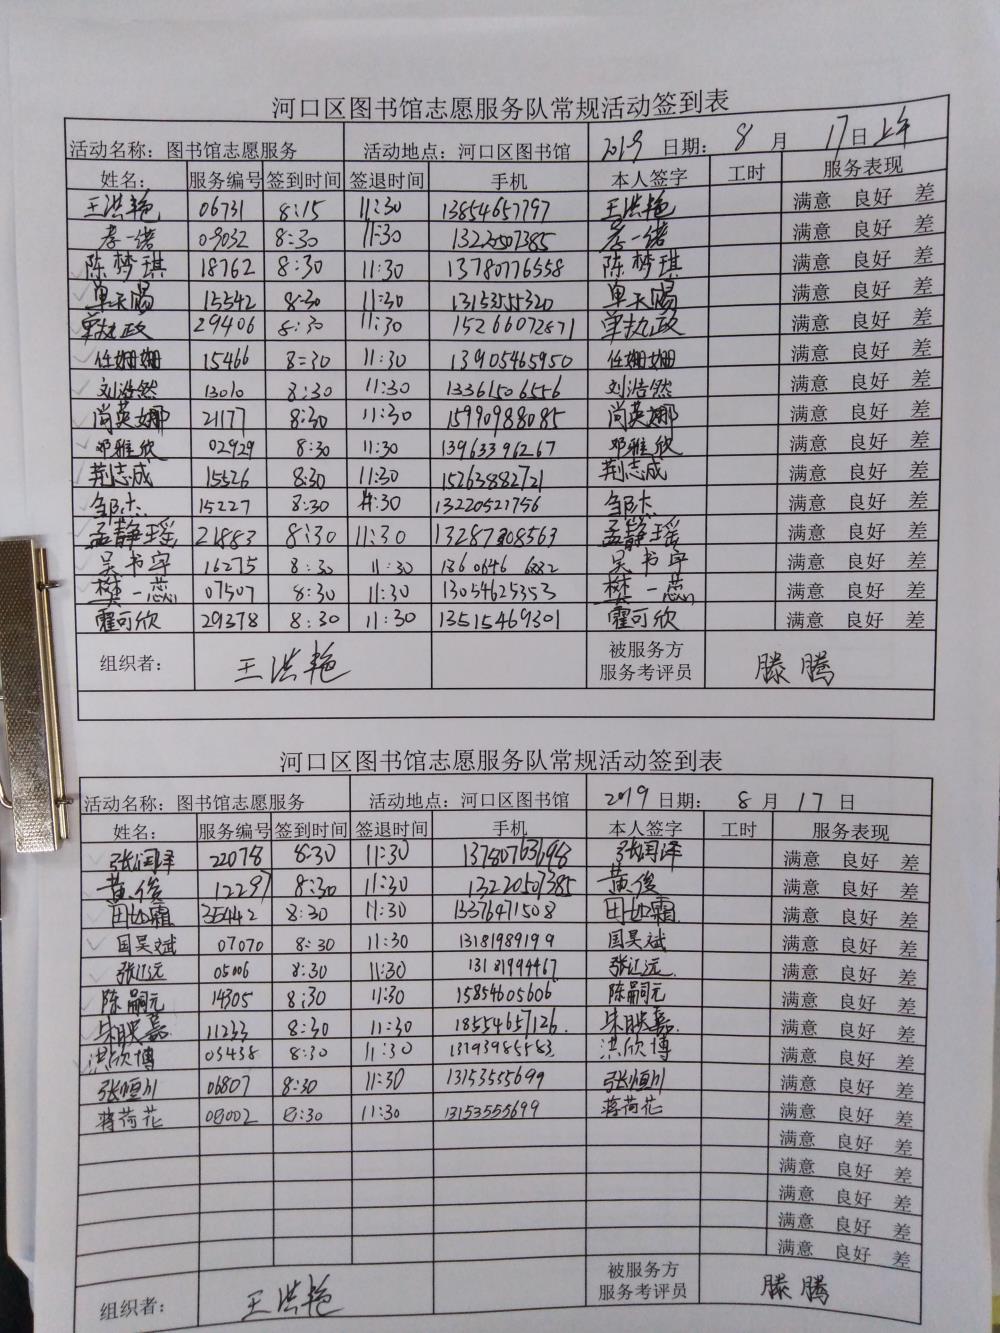 河口区图书馆志愿服务队常规活动签到表
活动名称：图书馆志愿服务 活动地点：河口区图书馆 2019 日期： 8 月 17日上午
姓名： 服务编号 签到时间 签退时间 手机 本人签字 工时 服务表现
王洪艳 06731 8:15 11:30 13854657797 王洪艳 满意 良好 差
09032 8:30 11:30 13220507385 满意 良好 差
陈梦琪 18762 8:30 11:30 13780776558 陈梦琪 满意 良好 差
单天赐 15542 8:30 11:30 13153555320 单天赐 满意 良好 差
单执政 29406 8:30 11:30 15266072871 单执政 满意 良好 差
任姗姗 15466 8:30 11:30 13905465950 任姗姗 满意 良好 差
刘浩然 13010 8:30 11:30 13361506556 刘浩然 满意 良好 差
尚英娜 21177 8:30 11:30 15990988085 尚英娜 满意 良好 差
邓雅欣 02929 8:30 11:30 13963396267 邓雅欣 满意 良好 差
荆志成 15526 8:30 11:30 15263882721 荆志成 满意 良好 差
邹杰 15227 8:30 11:30 13220521756 邹杰 满意 良好 差
孟静瑶 21883 8:30 11:30 13287308563 孟静瑶 满意 良好 差
吴书宇 16275 8:30 11:30 1360646 吴书宇 满意 良好 差
樊一蕊 07507 8:30 11:30 13054625353 樊一蕊 满意 良好 差
霍可欣 29378 8:30 11:30 13515469301 霍可欣 满意 良好 差
组织者： 王洪艳 被服务方 滕腾
服务考评员
河口区图书馆志愿服务队常规活动签到表
活动名称：图书馆志愿服务 活动地点：河口区图书馆 2019 日期： 8 月 17 日
姓名： 服务编号 签到时间 签退时间 手机 本人签字 工时 服务表现
张润泽 22078 8:30 11:30 张润泽 满意 良好 差
黄俊 12297 8:30 11:30 13220507385 黄俊 满意 良好 差
田如霜 35442 8:30 11:30 13376471508 田如霜 满意 良好 差
国昊斌 07070 8:30 11:30 13181989199 国昊斌 满意 良好 差
张江远 05006 8:30 11:30 13181994467 张江远 满意 良好 差
陈嗣元 14305 8:30 11:30 15854605606 陈嗣元 满意 良好 差
朱映嘉 11233 8:30 11:30 18554657126. 朱映嘉 满意 良好 差
洪欣博 03438 8:30 11:30 13793985583. 洪欣博 满意 良好 差
张恒川 06807 8:30 11:30 13153555699 张恒川 满意 良好 差
蒋荷花 08002 8:30 11:30 13153555699 蒋荷花 满意 良好 差
满意 良好 差
满意 良好 差
满意 良好 差
满意 良好 差
满意 良好 差
组织者： 王洪艳 被服务方 滕腾
服务考评员